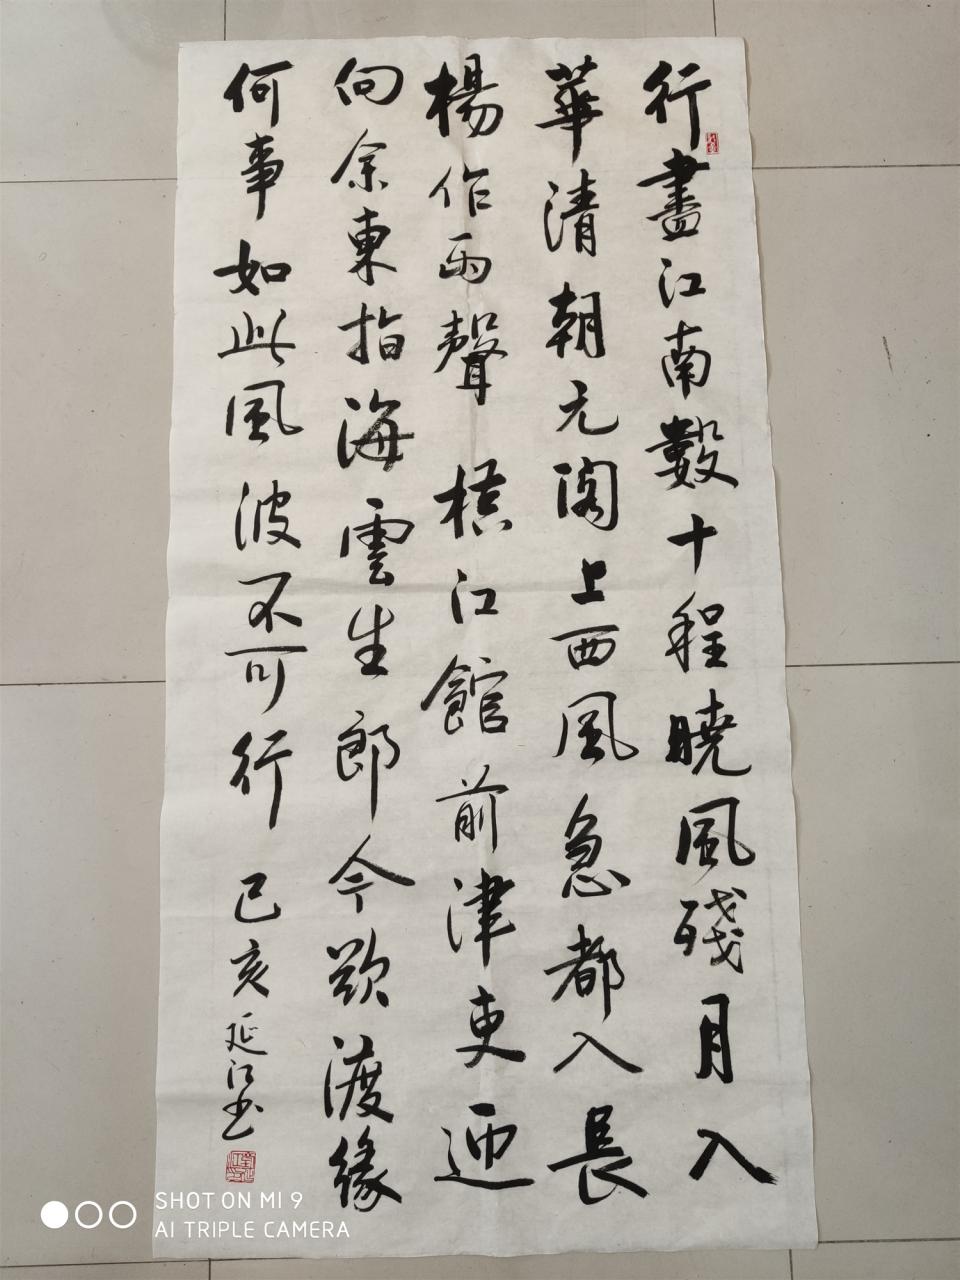 行盡江南數十程曉風殘月入
華清朝元閣上西風急都入長
楊作雨聲 橫江館前津吏迎
向余東指海雲生郎今欲渡緣
何事如此風波不可行 己亥延江书
SHOT ON MI 9
AI TRIPLE CAMERA